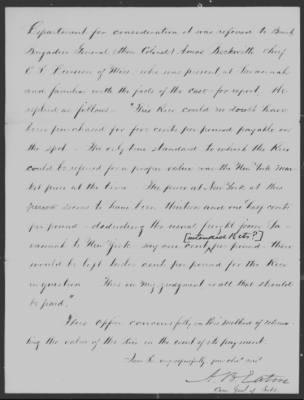 Department for consideration it was referred to Brevt
Brigadier General (then Colonel) Amos Beckwith chief
C. S. Division of Miss. who was present at Savannah
and familiar with the facts of the case for report. He
replied as follows - "This Rice could no doubt have
been purchased for five cents per pound payable on
the spot - The only true standard to which the Rice
could be referred for a proper value was the New York mar-
ket price at the time. The price at New York at this
period seems to have been thirteen and one half cents
per pound - deducting the usual freight from Sa-
[intended Rate?]
vannah to New York say one cent per pound there
would be left twelve cents per pound for the Rice
in question. This in my judgment is all that should
be paid."
This Office concurs fully in this method of estima-
ting the value of the rice in the event of its payment.
I am Sir, very respectfully your obt. svt.
A. B. Eaton
Com. Genl. of Subs.